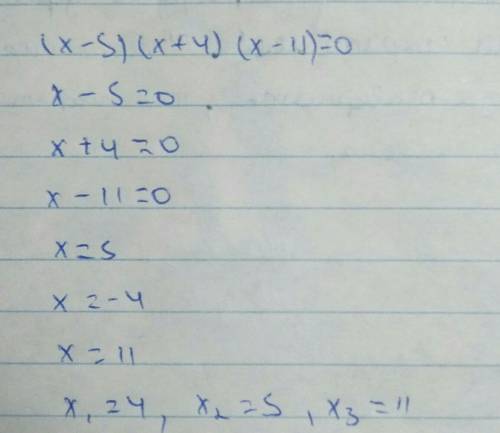 (x-5)(x+4)(x-11)=0
x-5=0
x+4=0
x-11=0
x=5
x=-4
x=11
x₁=4, x₂=5, x₃=11